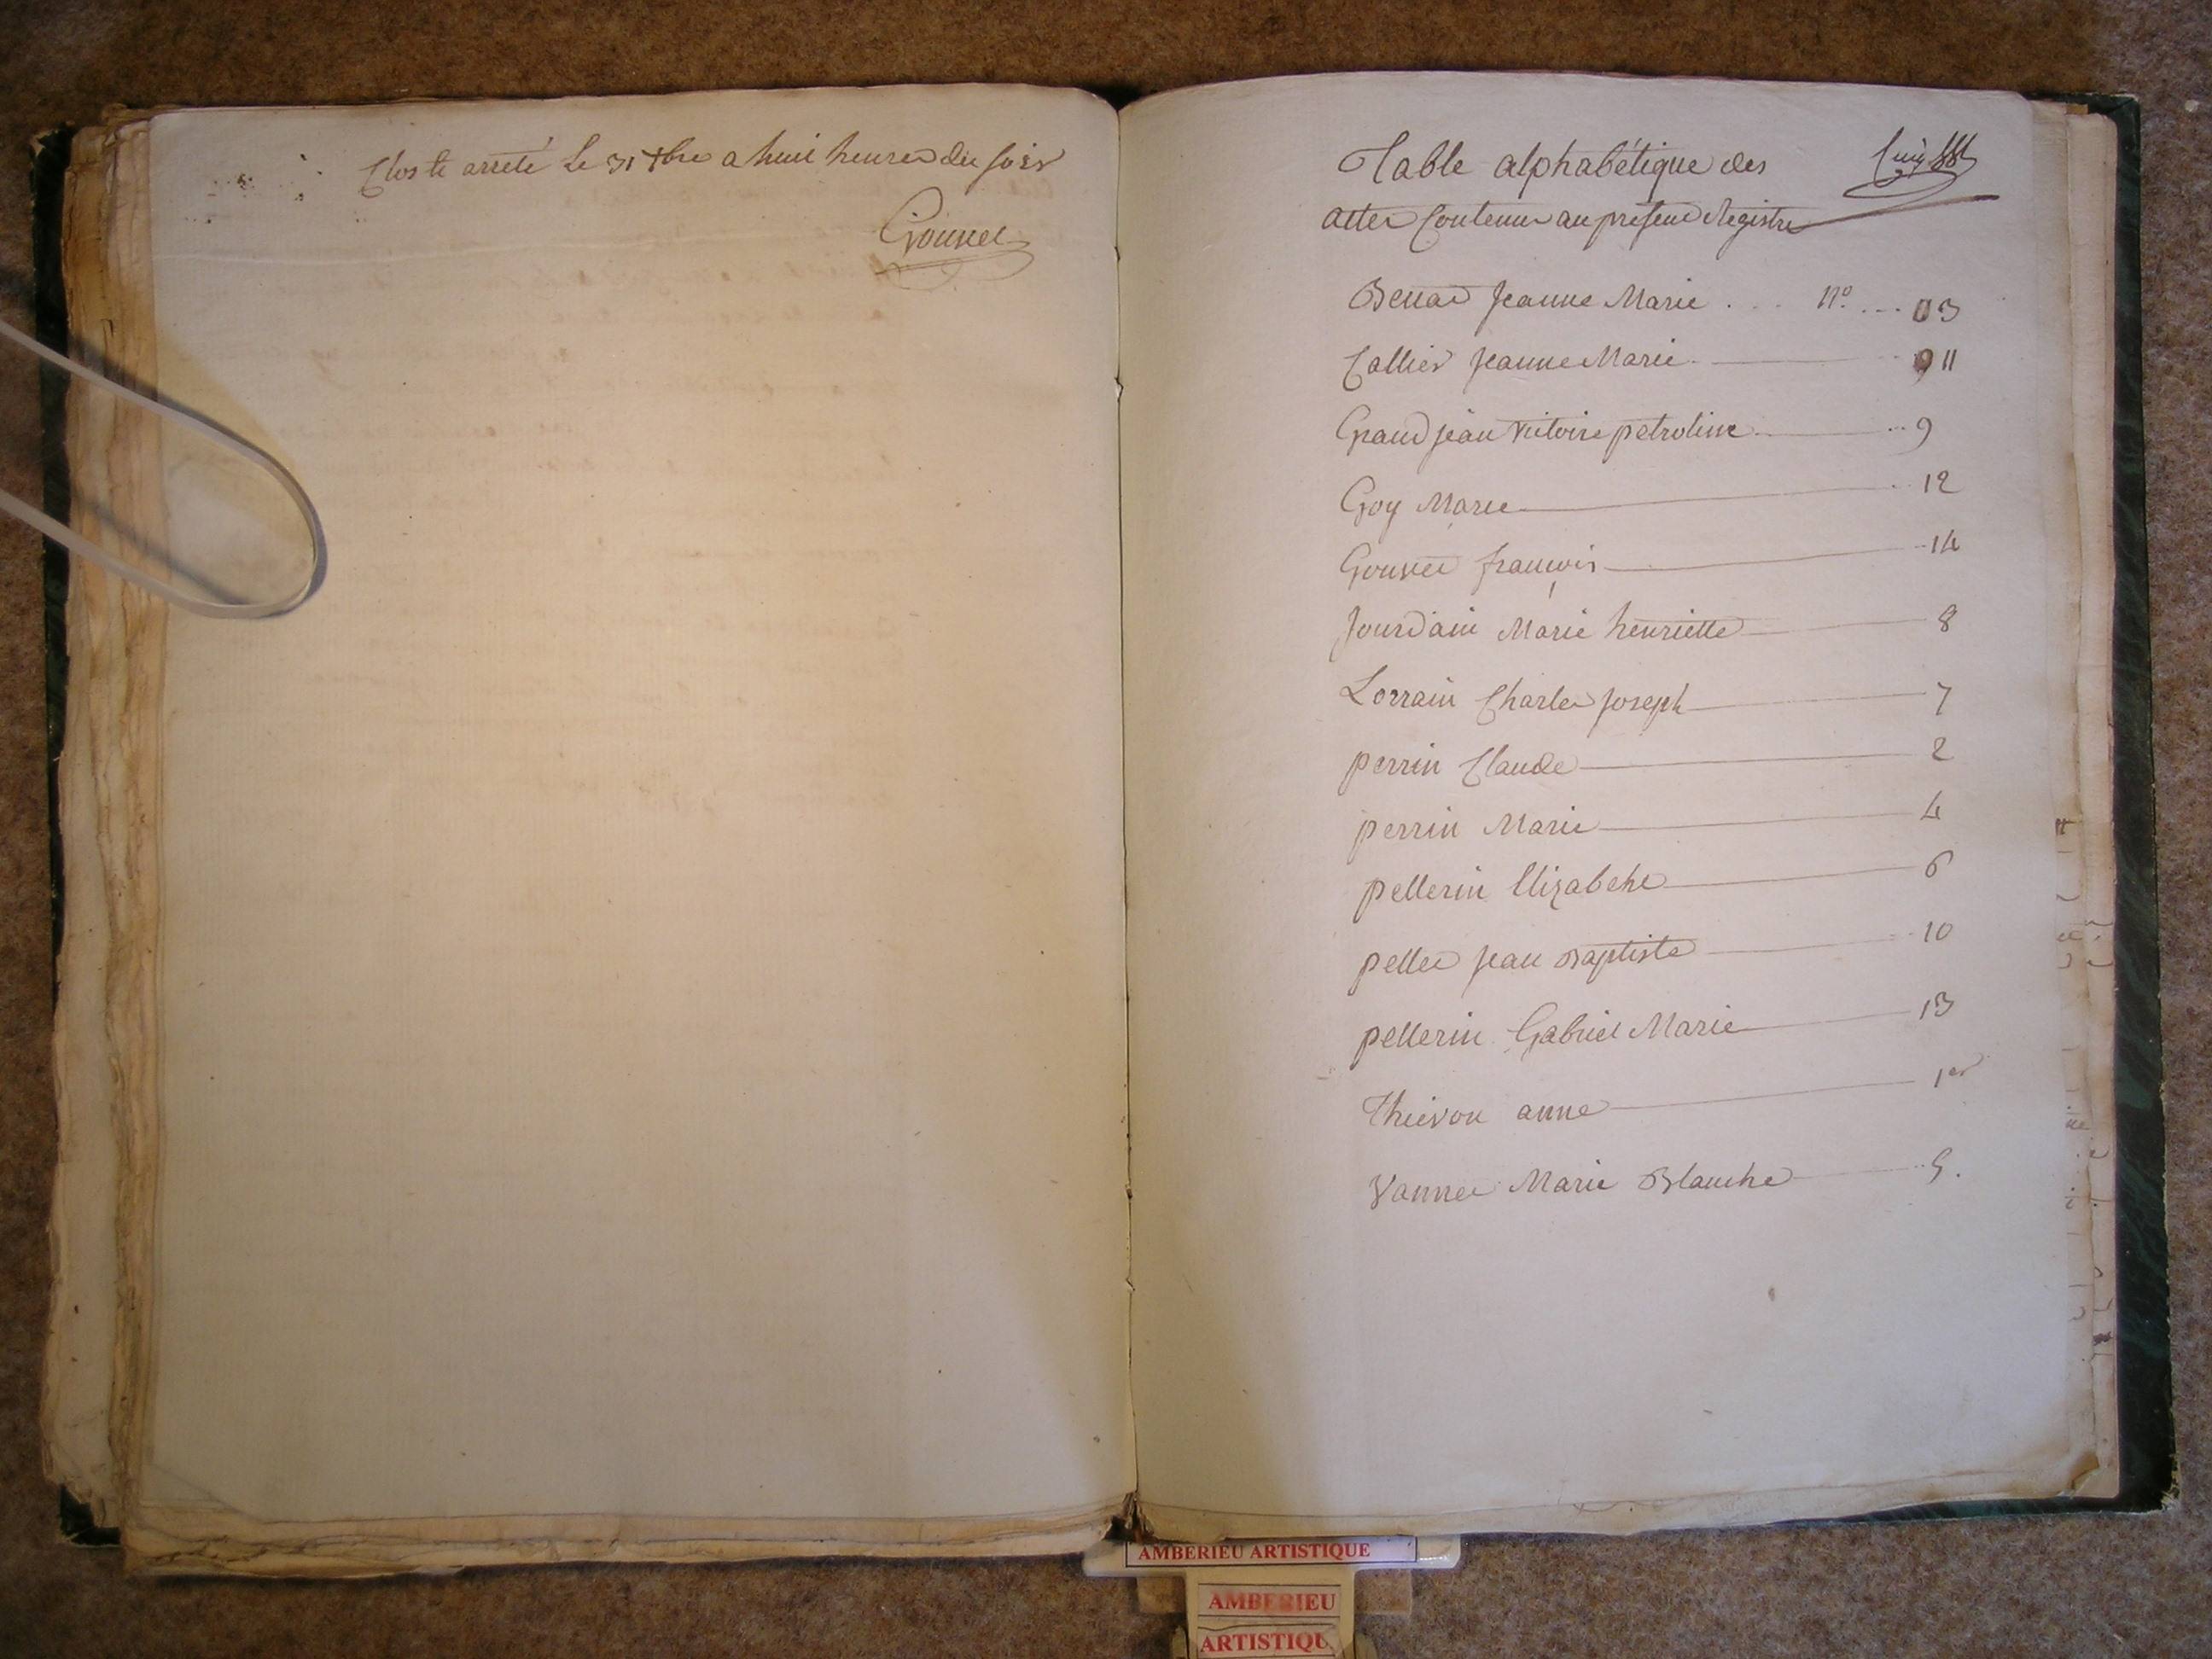 Clos te arreté Le 31 Xbre a huit heures du soir
Gouvet
Table alphabétique des
actes Contenus au present Registre
Benat Jeanne Marie . . . n° . . . 3
Callier Jeanne Marie 11
Grandjean Victoire petroline 9
Goy Marie 12
Gouvet françois 14
Jourdain Marie henriette 8
Lorrain Charles Joseph 7
perrin Claude 2
perrin Marie 4
pellerin Elizabeht 6
pellet Jean Baptiste 10
pellerin Gabriel Marie 13
Thievon anne 1er
Vannet Marie Blanche 5.
AMBERIEU ARTISTIQUE
AMBERIEU
ARTISTIQU